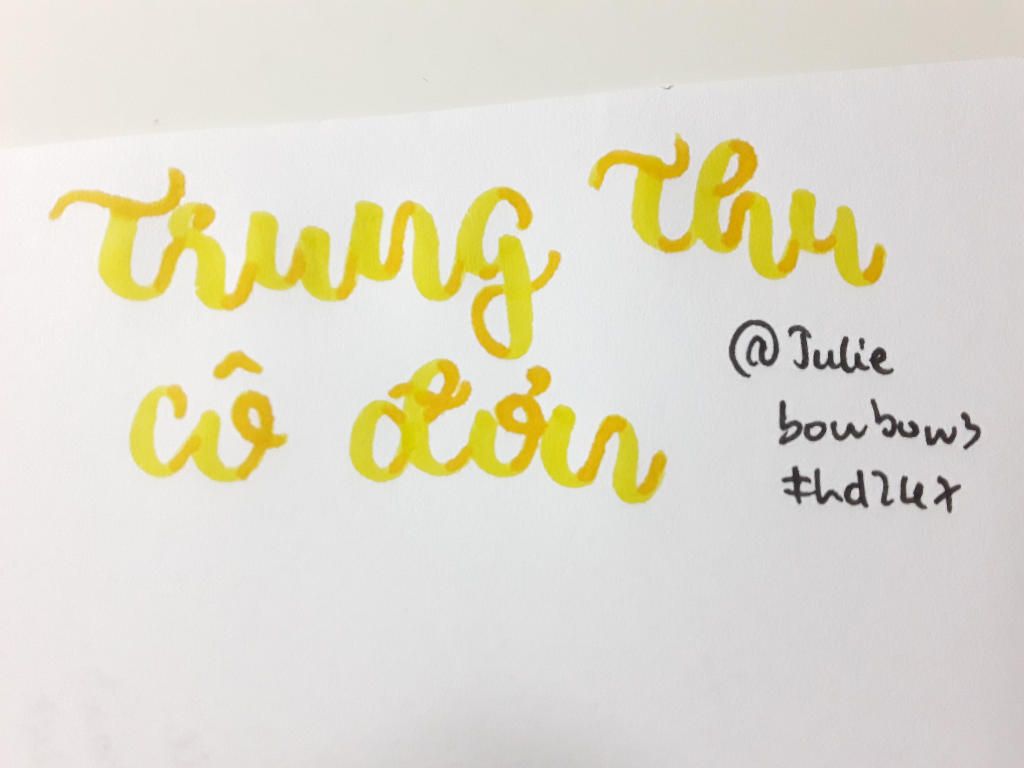 trung thu
cô đơn
@Julie
bowbow3
#hd24x